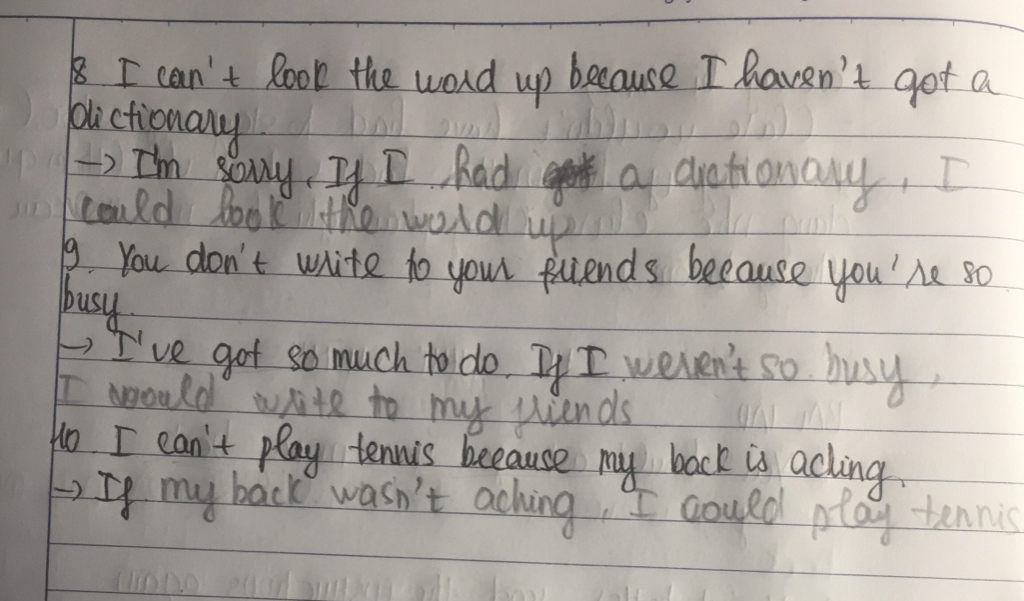 8 I can't look the word up because I haven't got a
dictionary.
→ I'm sorry. If I had a dictionary, I
could look the word up
9. You don't write to your friends because you're so
busy.
→ I've got so much to do. If I weren't so busy,
I would write to my friends
10 I can't play tennis because my back is acling.
→ If my back wasn't aching, I could play tennis